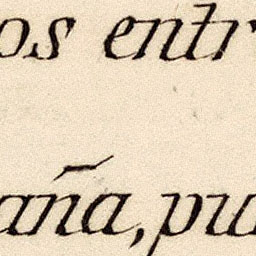 os entr
aña, pu